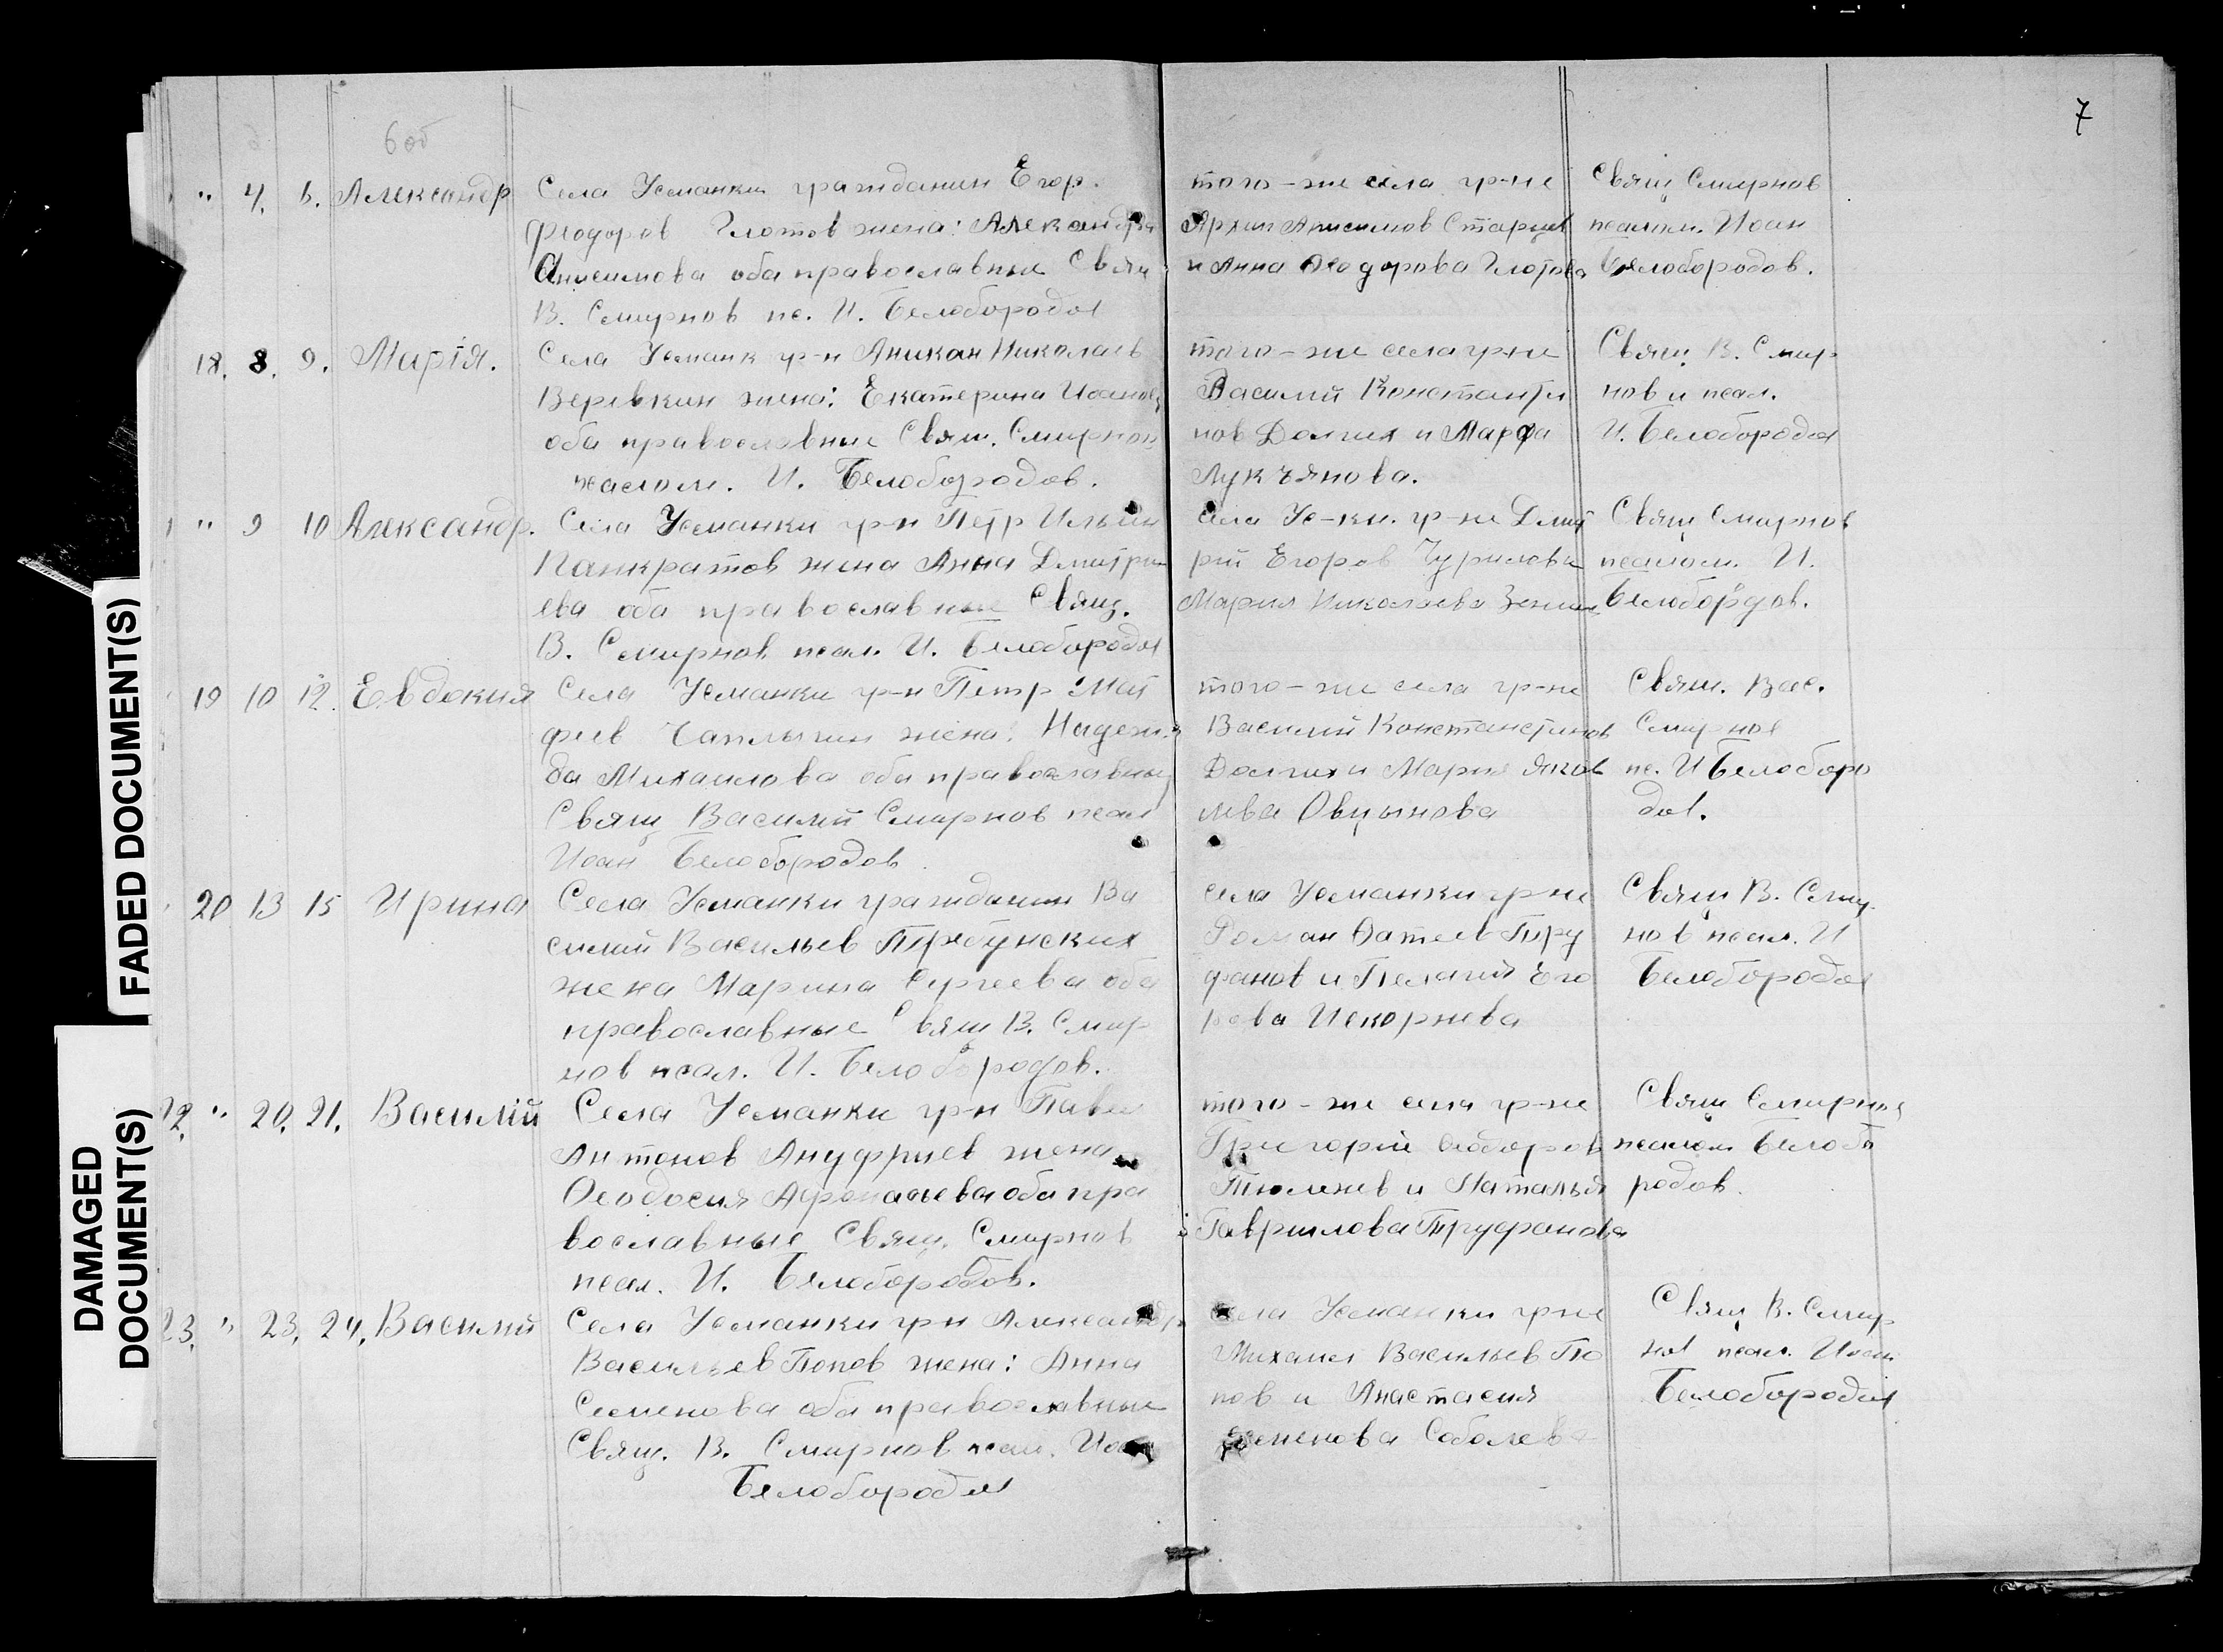 7
6 об
" 4. 6. Александр
Села Усманки гражданин Егор.
Феодоров Глотов жена: Александра
Анисимова оба православные Свящ
В. Смирнов пс. И. Белобородов
того-же села гр-не
Архип Анисимов Старцев
и Анна Феодорова Глотова
Свящ Смирнов
псалом. Иоан
Белобородов.
18. 8. 9. Марія.
Села Усманк гр-н Аникан Николаев
Веревкин жена: Екатерина Иоанов
оба православные Свящ. Смирнов
псалом. И. Белобородов.
того-же села гр-не
Василий Константи
нов Долгих и Марфа
Лукъянова.
Свящ В. Смир
нов и псал.
И. Белобородов
" 9 10 Александр.
Села Усманки гр-н Петр Ильин
Панкратов жена Анна Дмитри
ева оба православные Свящ.
В. Смирнов псал. И. Белобородов
села Ус-ки. гр-не Дмит
рій Егоров Чурилов и
Мария Николаева
Свящ Смирнов
псалом. И.
Белобордов.
19 10 12. Евдокия
Села Усманки гр-н Петр Мат
феев Чаплыгин жена: Надеж
да Михаилова оба православны
Свящ Василий Смирнов псал
Иоан Белобородов.
того-же села гр-не
Василий Константинов
Долгих и Мария Яков
лева Овцынова
Свящ. Вас.
Смирнов
пс. И Белоборо
дов.
20 13 15 Ирина
Села Усманки гражданин Ва
силий Васильев Требунских
жена Марина Сергеева оба
православные Свящ В. Смир
нов псал. И. Белобородов.
села Усманки гр-не
Роман Фатеев Тру
фанов и Пелагия Его
рова Искорнева
Свящ В. Смир
нов псал. И
Белобородов
22. " 20. 21. Василій
Села Усманки гр-н Павел
Антонов Ануфриев жена
Феодосия Афонасьева оба пра
вославные Свящ. Смирнов
псал. И. Белобородов.
того-же села гр-не
Григорій Феодоров
Тюленев и Наталья
Гаврилова Труфанова
Свящ Смирнов
псалом Белобо
родов.
23. " 23. 24. Василій
Села Усманки гр-н Александр
Васильев Попов жена: Анна
Семенова оба православные
Свящ. В. Смирнов псал. Иоан
Белобородов
села Усманки гр-не
Михаил Васильев По
пов и Анастасия
Семенова Соболева
Свящ В. Смир
нов псал. Иоан
Белобородов
FADED DOCUMENT(S)
DAMAGED
DOCUMENT(S)